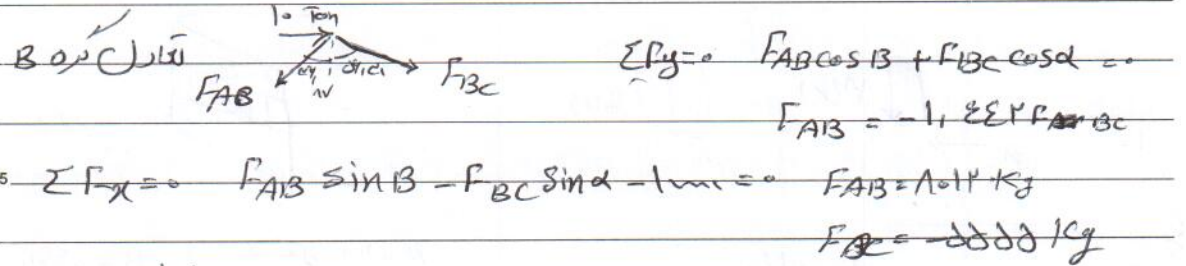 تعادل گره B
۱۰ Ton
F_AB F_BC
ΣFy=۰ F_AB cosB + F_BC cosα = ۰
F_AB = -۱,۴۴۲ F_BC
5 ΣFx=۰ F_AB SinB - F_BC Sinα - ۱۰۰۰۰ = ۰ F_AB = ۸۰۱۲ Kg
F_BC = -۵۵۵۵ Kg